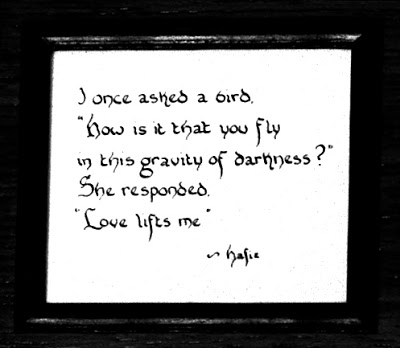 I once asked a bird,
"How is it that you fly
in this gravity of darkness?"
She responded,
"Love lifts me"
~ Hafie